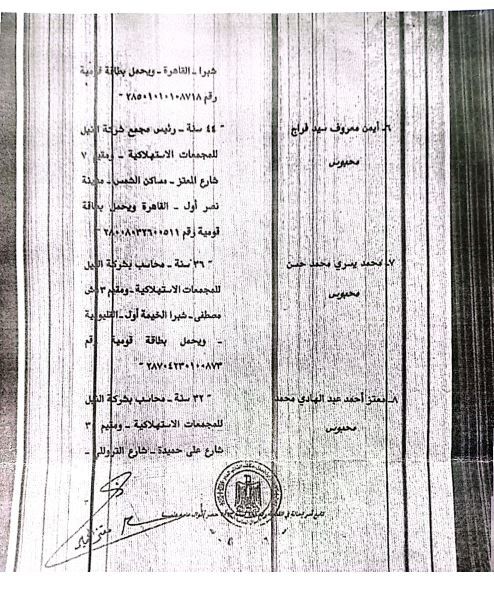 شبرا ـ القاهرة ـ ويحمل بطاقة قومية
رقم ٢٨٥٠١٠١٠١٠٨٧١٨ "
٦ـ أيمن معروف سيد فراج
محبوس
" ٤٤ سنة ـ رئيس مجمع شركة النيل
للمجمعات الاستهلاكية ـ ومقيم ٧
شارع المعتز ـ مساكن الشمس ـ مدينة
نصر أول ـ القاهرة ويحمل بطاقة
قومية رقم ٢٨٠٠٨٠٣٢٦٠٠٥١١ "
٧ـ محمد يسري محمد حسن
محبوس
" ٣٦ سنة ـ محاسب بشركة النيل
للمجمعات الاستهلاكية ـ ومقيم ٣ ش
مصطفى ـ شبرا الخيمة أول ـ القليوبية
ـ ويحمل بطاقة قومية رقم
٢٨٧٠٤٢٣٠١٠٠٨٧٣ "
٨ـ معتز أحمد عبد الهادي محمد
محبوس
" ٣٢ سنة ـ محاسب بشركة النيل
للمجمعات الاستهلاكية ـ ومقيم ٣
شارع على حميدة ـ شارع التروللي ـ